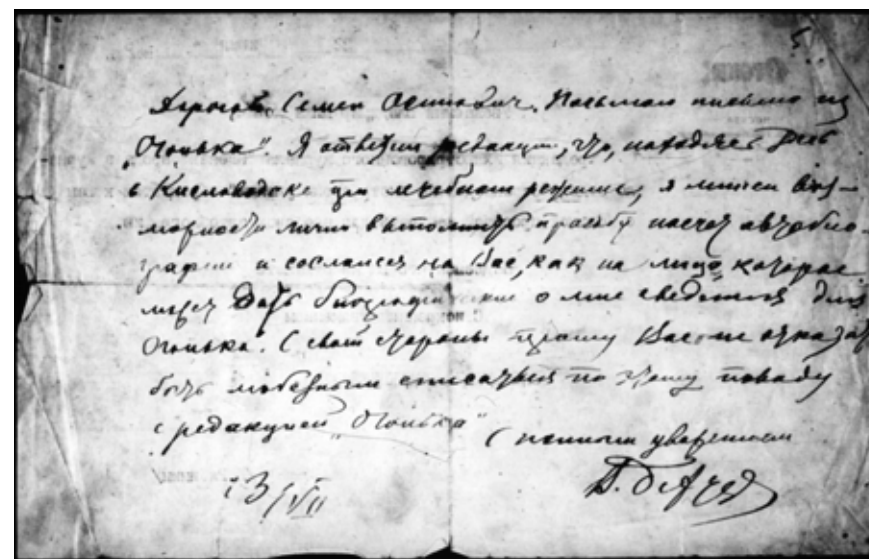 Дорогой Семен Осипович. Посылаю письмо из
„Огонька". Я ответил редакции, что, находясь здесь
в Кисловодске при лечебном режиме, я лишен воз-
можности лично выполнить просьбу насчет автобио-
графии и сослался на Вас, как на лицо, которое
может дать биографические о мне сведения для
Огонька. С своей стороны прошу Вас не отказать
быть любезным списаться по этому поводу
с редакцией „Огонька"
С полным уважением
13/VII